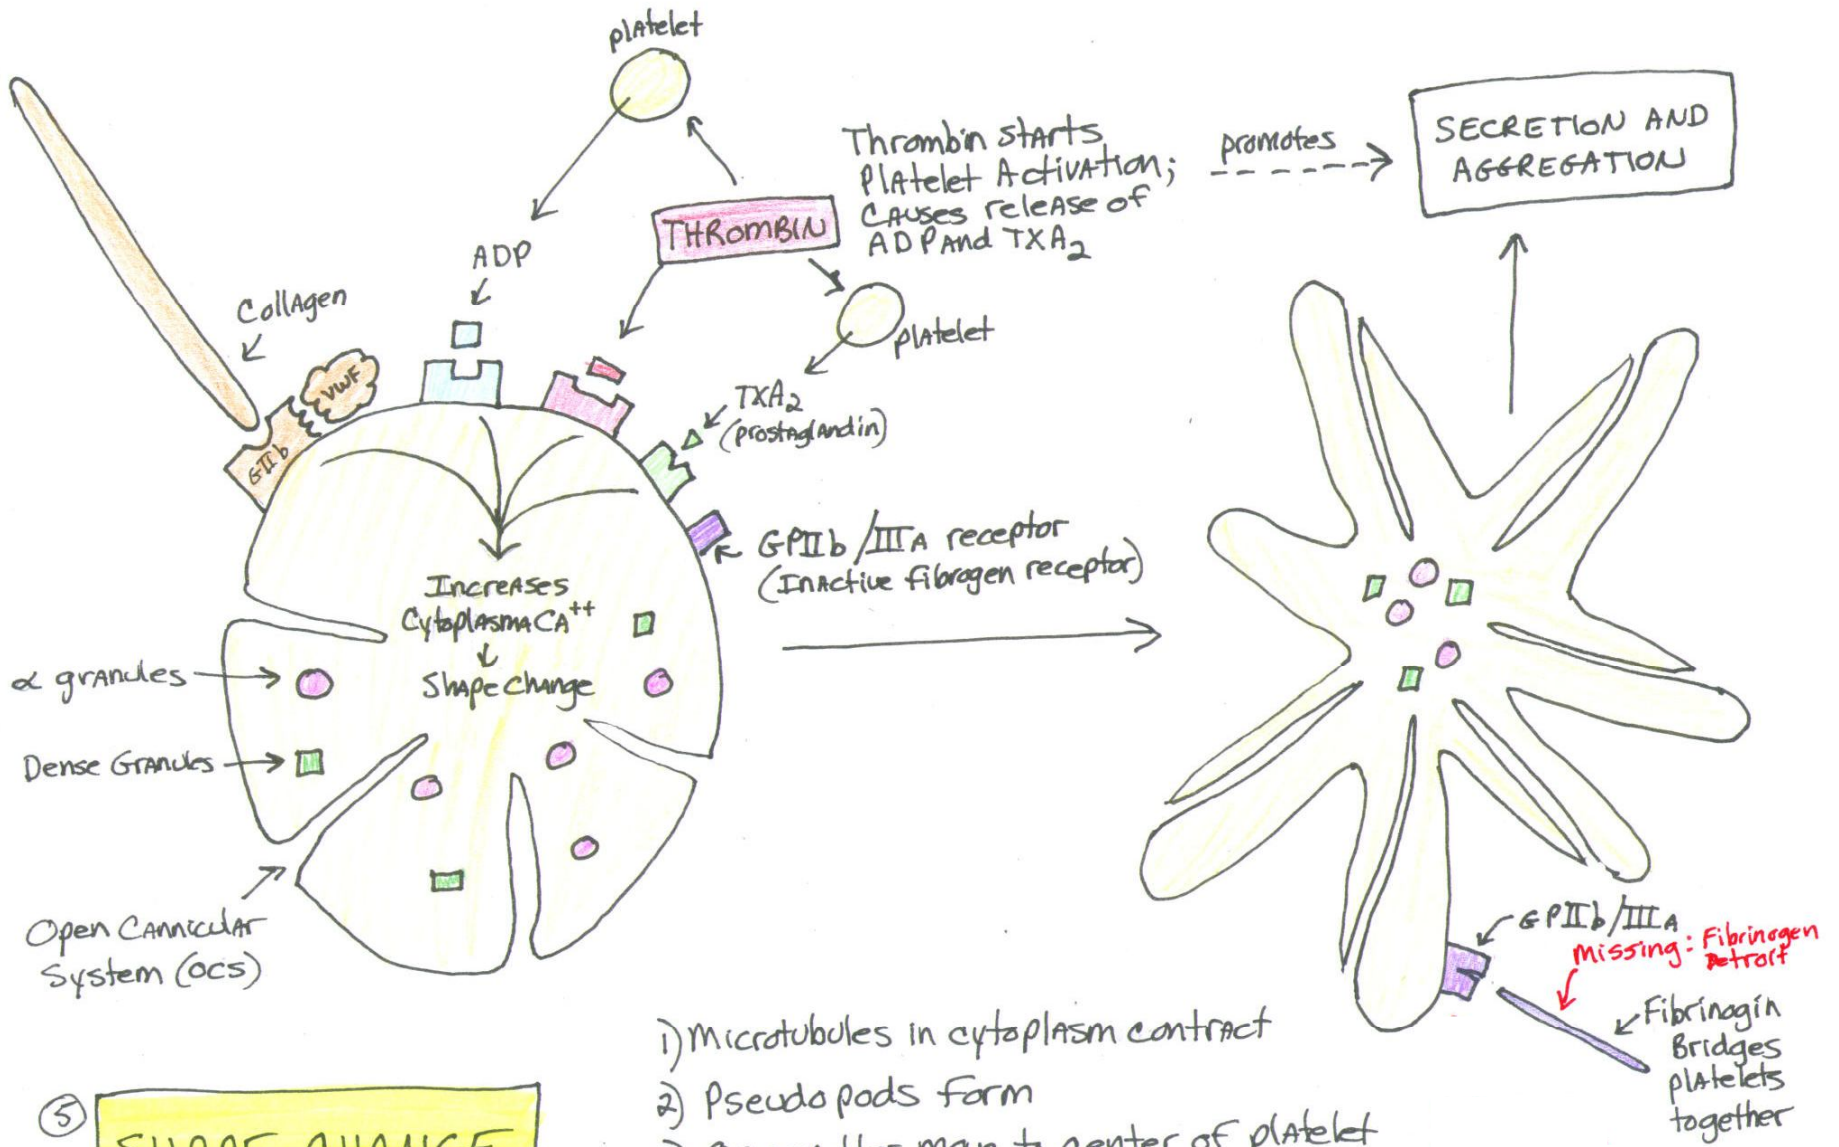 platelet
Thrombin starts
Platelet Activation;
causes release of
ADP And TXA2
promotes
SECRETION AND
AGGREGATION
THROMBIN
ADP
Collagen
platelet
VWF
GIIb
TXA2
(prostaglandin)
GPIIb/IIIA receptor
(Inactive fibrogen receptor)
Increases
Cytoplasma CA++
Shape change
α granules
Dense Granules
Open Cannicular
System (OCS)
GPIIb/IIIA
Missing: Fibrinogen
Detroit
Fibrinogin
Bridges
platelets
together
1) Microtubules in cytoplasm contract
2) Pseudopods form
to center of platelet
5
SHAPE CHANGE